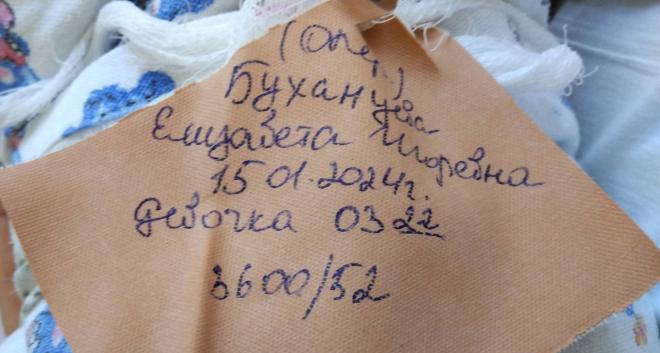 (Опер.)
Буханцева
Елизавета Игоревна
15.01.2024г.
Девочка 0322
3600/52